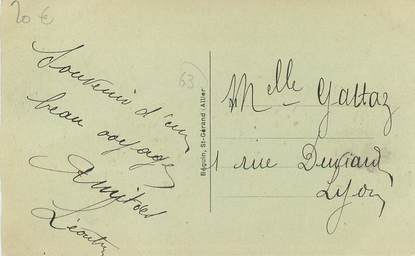 20 €
63
Souvenir d'un
beau voyage
Amitiés
Béguin, St-Gérand (Allier
Melle Gattaz
1 rue
Lyon